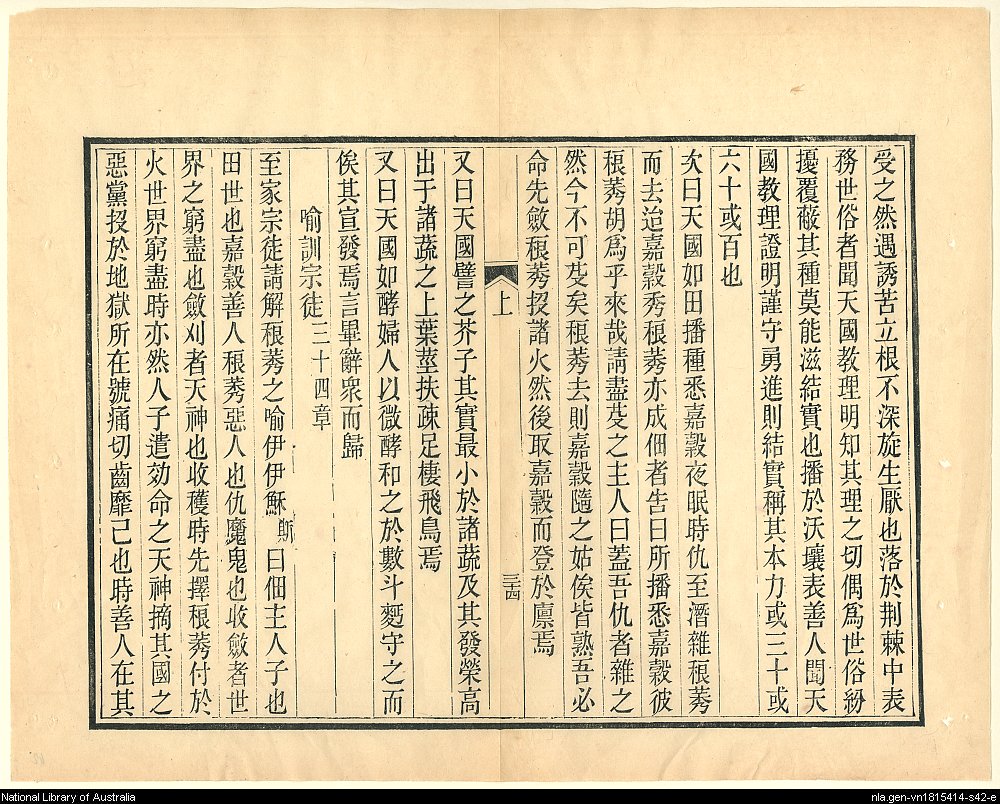 受之然遇誘苦立根不深旋生厭也落於荆棘中表
務世俗者聞天國教理明知其理之切偶爲世俗紛
擾覆蔽其種莫能滋結實也播於沃壤表善人聞天
國教理證明謹守勇進則結實稱其本力或三十或
六十或百也
次曰天國如田播種悉嘉穀夜眠時仇至潛雜稂莠
而去迨嘉穀秀稂莠亦成佃者告曰所播悉嘉穀彼
稂莠胡爲乎來哉請盡芟之主人曰蓋吾仇者雜之
然今不可芟矣稂莠去則嘉穀隨之姑俟皆熟吾必
命先斂稂莠投諸火然後取嘉穀而登於廩焉
上
三十四
又曰天國譬之芥子其實最小於諸蔬及其發榮高
出于諸蔬之上葉莖扶疎足棲飛鳥焉
又曰天國如酵婦人以微酵和之於數斗麪守之而
俟其宣發焉言畢辭衆而歸
喻訓宗徒三十四章
至家宗徒請解稂莠之喻伊伊穌曰佃主人子也
田世也嘉穀善人稂莠惡人也仇魔鬼也收斂者世
界之窮盡也斂刈者天神也收穫時先擇稂莠付於
火世界窮盡時亦然人子遣効命之天神摘其國之
惡黨投於地獄所在號痛切齒靡已也時善人在其
National Library of Australia
nla.gen-vn1815414-s42-e